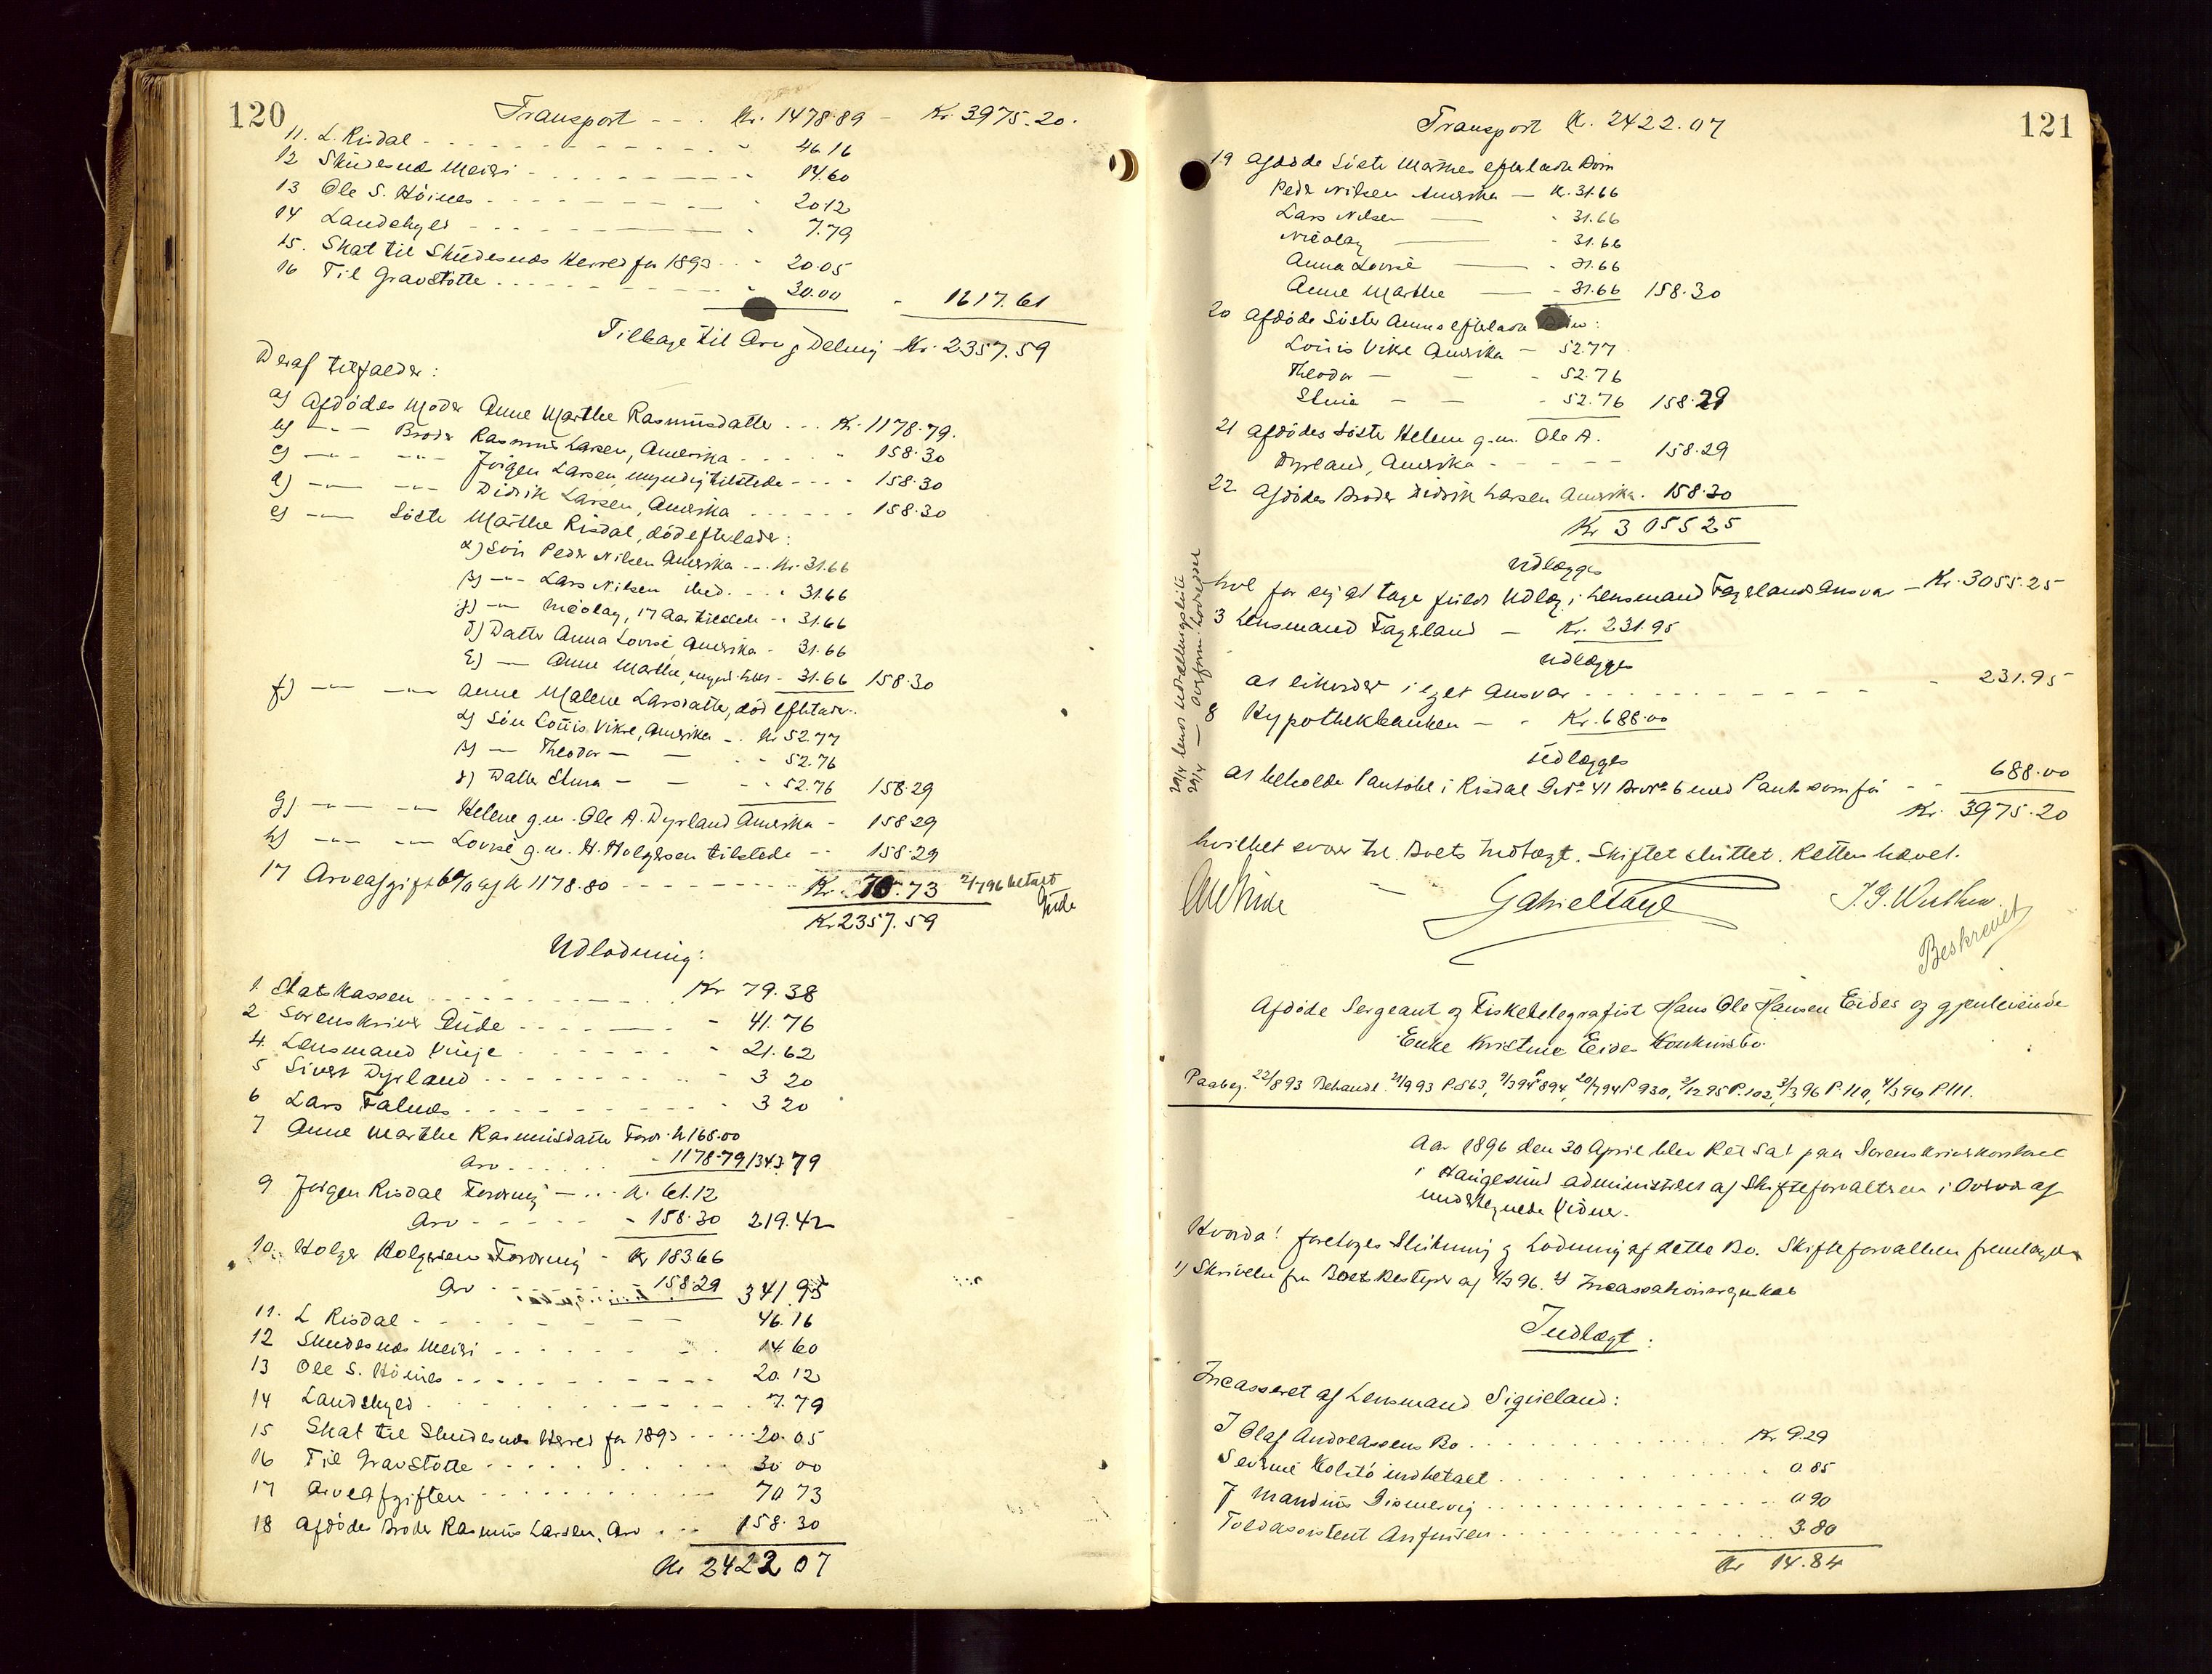 120
Transport - - . Kr. 1478.89 - Kr. 3975.20.
11. L. Risdal - - - - 46.16
12 Skudesnæs Meieri - - - - 14.60
13 Ole S. Höines - - - - 20.12
14 Landskyld - - - - 7.79
15. Skat til Skudesnæs Herred for 1893 - - 20.05
16 Til Gravstötte - - - - 30.00 - 1617.61
Tilbage til Arv og Deling Kr. 2357.59
Deraf tilfalder:
a) Afdödes Moder Anne Marthe Rasmusdatter . . . Kr. 1178.79.
b) —"— Broder Rasmus Larsen, Amerika - - - - 158.30
c) —"— —"— Jörgen Larsen, myndig tilstede - - - 158.30
d) —"— —"— Didrik Larsen, Amerika - - - - 158.30
e) —"— Söster Marthe Risdal, död efterlader:
α) Sön Peder Nilsen Amerika - - . Kr. 31.66
β) —"— Lars Nilsen ibid. - . - 31.66
γ) —"— Nicolay, 17 Aar tilstede - - 31.66
δ) Datter Anna Lovise, Amerika - 31.66
ε) — Anne Marthe, - 31.66 158.30
f) —"— —"— Anne Malene Larsdatter, död efterlader:
α) Sön Louis Vikre, Amerika - . Kr 52.77
β) — Theodor — — - - 52.76
γ) Datter Stina — — - - 52.76 158.29
g) —"— —"— Helene g.m. Ole A. Dyrland Amerika - 158.29
h) —"— —"— Lovise g.m. H. Holgersen tilstede - - 158.29
17 Arveafgift 6% af Kr 1178.80 - - - - Kr. 70.73 2/7 96 betalt
Gude
Kr 2357.59
Udlodning:
1. Statskassen - - - - Kr 79.38
2. Sorenskriver Gude - - - - 41.76
4. Lensmand Vinje - - - - 21.62
5 Sivert Dyrland - - - - 3 20
6 Lars Falnes - - - - 3 20
7 Anne Marthe Rasmusdatter Fordr. Kr 165.00
Arv . . . . . . - 1178.79 1343.79
9 Jörgen Risdal Fordring — . . . Kr. 61.12
Arv - - - - - - 158.30 219.42
10. Holger Holgersens Fordring - Kr 183 66
Arv - - - 158.29 341.95
11. L Risdal - - - - 46.16
12 Skudesnæs Meieri - - - - 14 60
13 Ole S. Höines - - - - 20.12
14 Landskyld - - - - 7.79
15 Skat til Skudesnæs Herred for 1893 - - - - 20.05
16 Til Gravstötte - - - - 30 00
17 Arveafgiften - - - - 70 73
18 Afdödes Broder Rasmus Larsen, Arv . - - 158.30
Kr 2422 07
121
Transport Kr. 2422.07
19 Afdöde Söster Marthes efterladte Börn
Peder Nilsen Amerika — Kr. 31.66
Lars Nilsen — - 31.66
Nicolay — - 31.66
Anna Lovise — - 31.66
Anne Marthe — - 31.66 158.30
20 Afdöde Söster Annes efterladte Börn:
Louis Vikre Amerika — 52.77
Theodor — — - 52.76
Stina — — - 52.76 158.29
21 Afdödes Söster Helene g.m. Ole A.
Dyrland, Amerika - - - - - 158.29
22 Afdödes Broder Didrik Larsen Amerika. 158.30
Kr 3055 25
Udlægges
hver for sig at tage fuldt Udlæg i Lensmand Fagerlands Ansvar — Kr. 3055.25
3 Lensmand Fagerland — Kr. 231.95
Udlægges
at likvidere i eget Ansvar - - - - 231.95
8 Hypothekbanken — - Kr. 688.00
Udlægges
at beholde Pantobl. i Risdal GNo 41 BrNo 6 med Pant som för - - 688.00
Kr. 3975.20
hvilket svarer til Boets Indtægt. Skiftet sluttet. Retten hævet.
Gude — Gabriel Fage
Beskrevet
Afdöde Sergeant og Fisketelegrafist Hans Ole Hansen Eides og gjenlevende
Enke Kristine Eides Konkursbo
Paabeg. 22/8 93 Behandl. 21/9 93 P. 863, 9/3 94 P 894, 20/7 94 P 930, 2/12 95 P. 102, 3/3 96 P. 110, 4/3 96 P. 111.
Aar 1896 den 30 April blev Ret sat paa Sorenskriverkontoret
i Haugesund administreret af Skifteforvalteren i Overvær af
undertegnede Vidner.
Hvorda! foretoges Slutning og Lodning af dette Bo. Skifteforvalteren fremlagde
1) Skrivelse fra Boets Bestyrer af 4/3 96. 2) Incassationsregnskab
Indtægt:
Incasseret af Lensmand Sigveland:
I Olaf Andreassens Bo - - - - Kr. 9.29
Severine Kolstö indbetalt - - - - 0.85
J Mandius Dismervig - - - - 0 90
Toldassistent Anfinsen - - - - 3.80
Kr 14.84